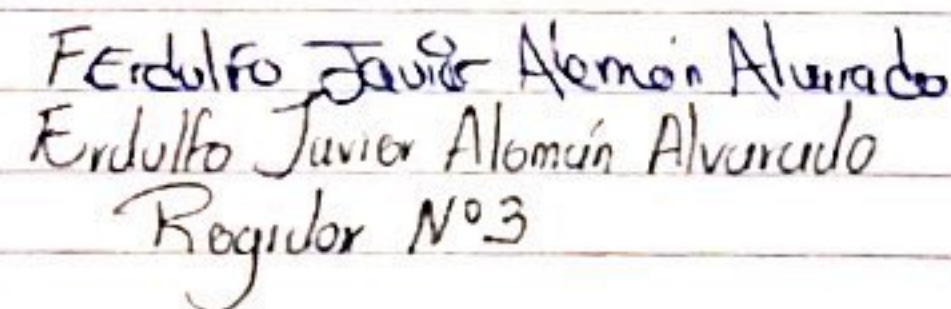 FErdulfo Javier Alemán Alvarado
Erdulfo Javier Alemán Alvarado
Regidor Nº3